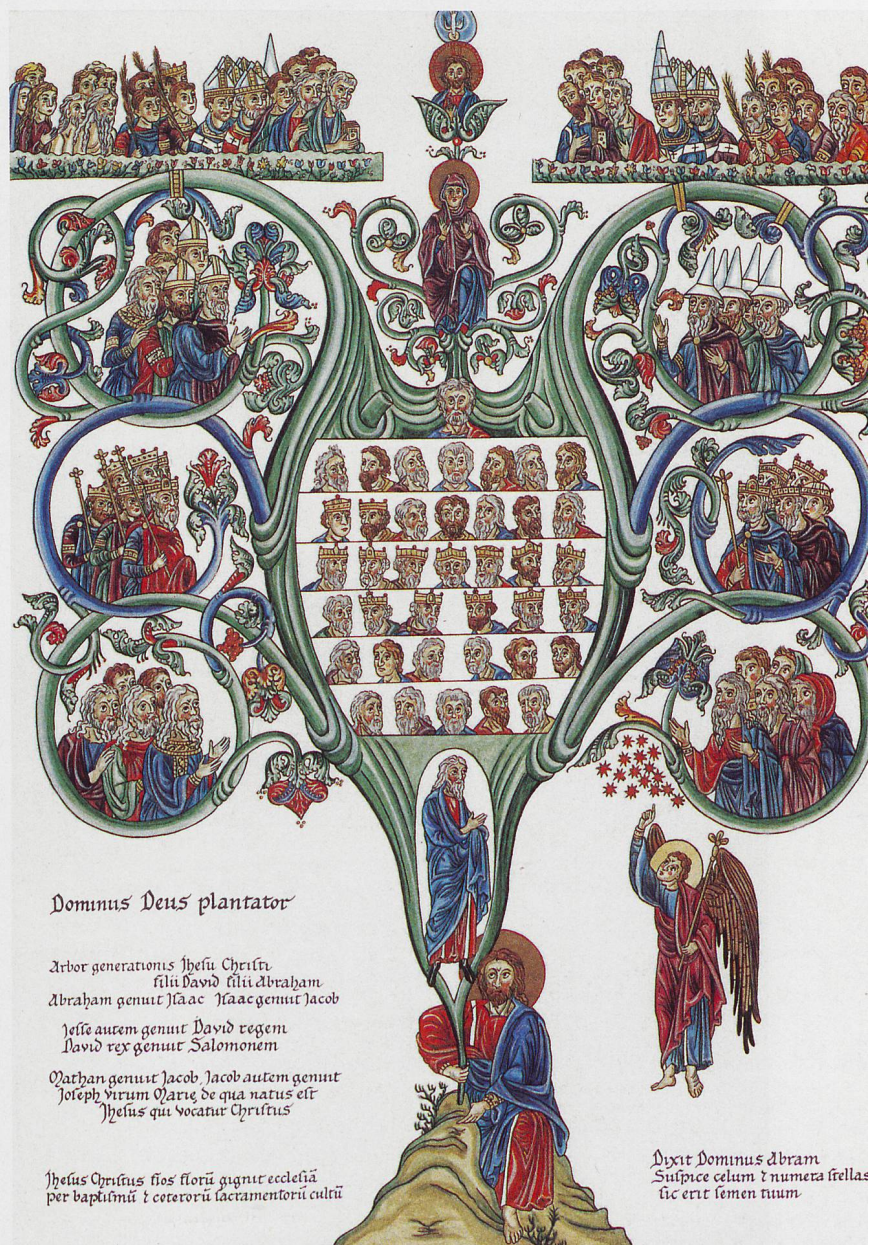 Dominus Deus plantator
Arbor generationis Jhesu Christi
filii David filii Abraham
Abraham genuit Isaac Isaac genuit Jacob
Jesse autem genuit David regem
David rex genuit Salomonem
Mathan genuit Jacob, Jacob autem genuit
Joseph virum Marie, de qua natus est
Jhesus qui vocatur Christus
Jhesus Christus flos florū gignit ecclesiā
per baptismū ⁊ ceterorū sacramentorū cultū
Dixit Dominus Abram
Suspice celum ⁊ numera stellas
sic erit semen tuum